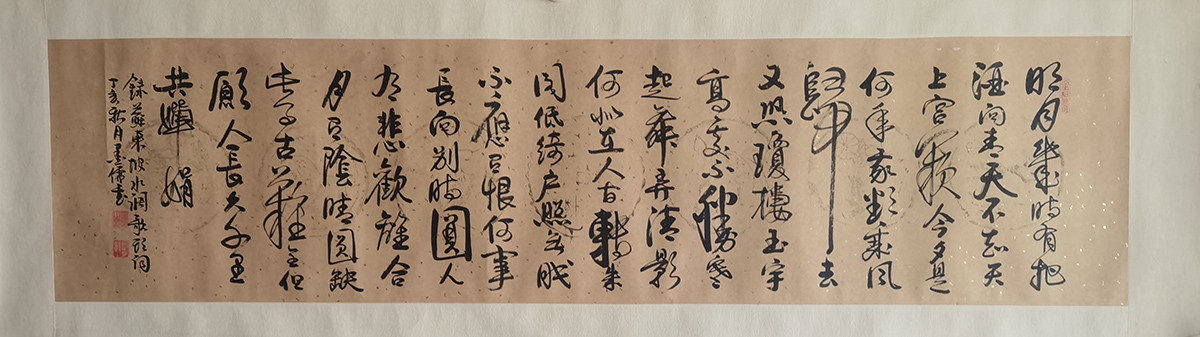 明月幾時有把
酒问青天不知天
上宫闕今夕是
何年我欲乘风
歸去
又恐瓊樓玉宇
高處不勝寒
起舞弄清影
何似在人间轉朱
阁低绮户照無眠
不應有恨何事
長向别時圓人
有悲歡離合
月有陰晴圆缺
此事古難全但
願人長久千里
共嬋娟
錄蘇東坡水调歌頭詞
丁亥秋月墨儒書